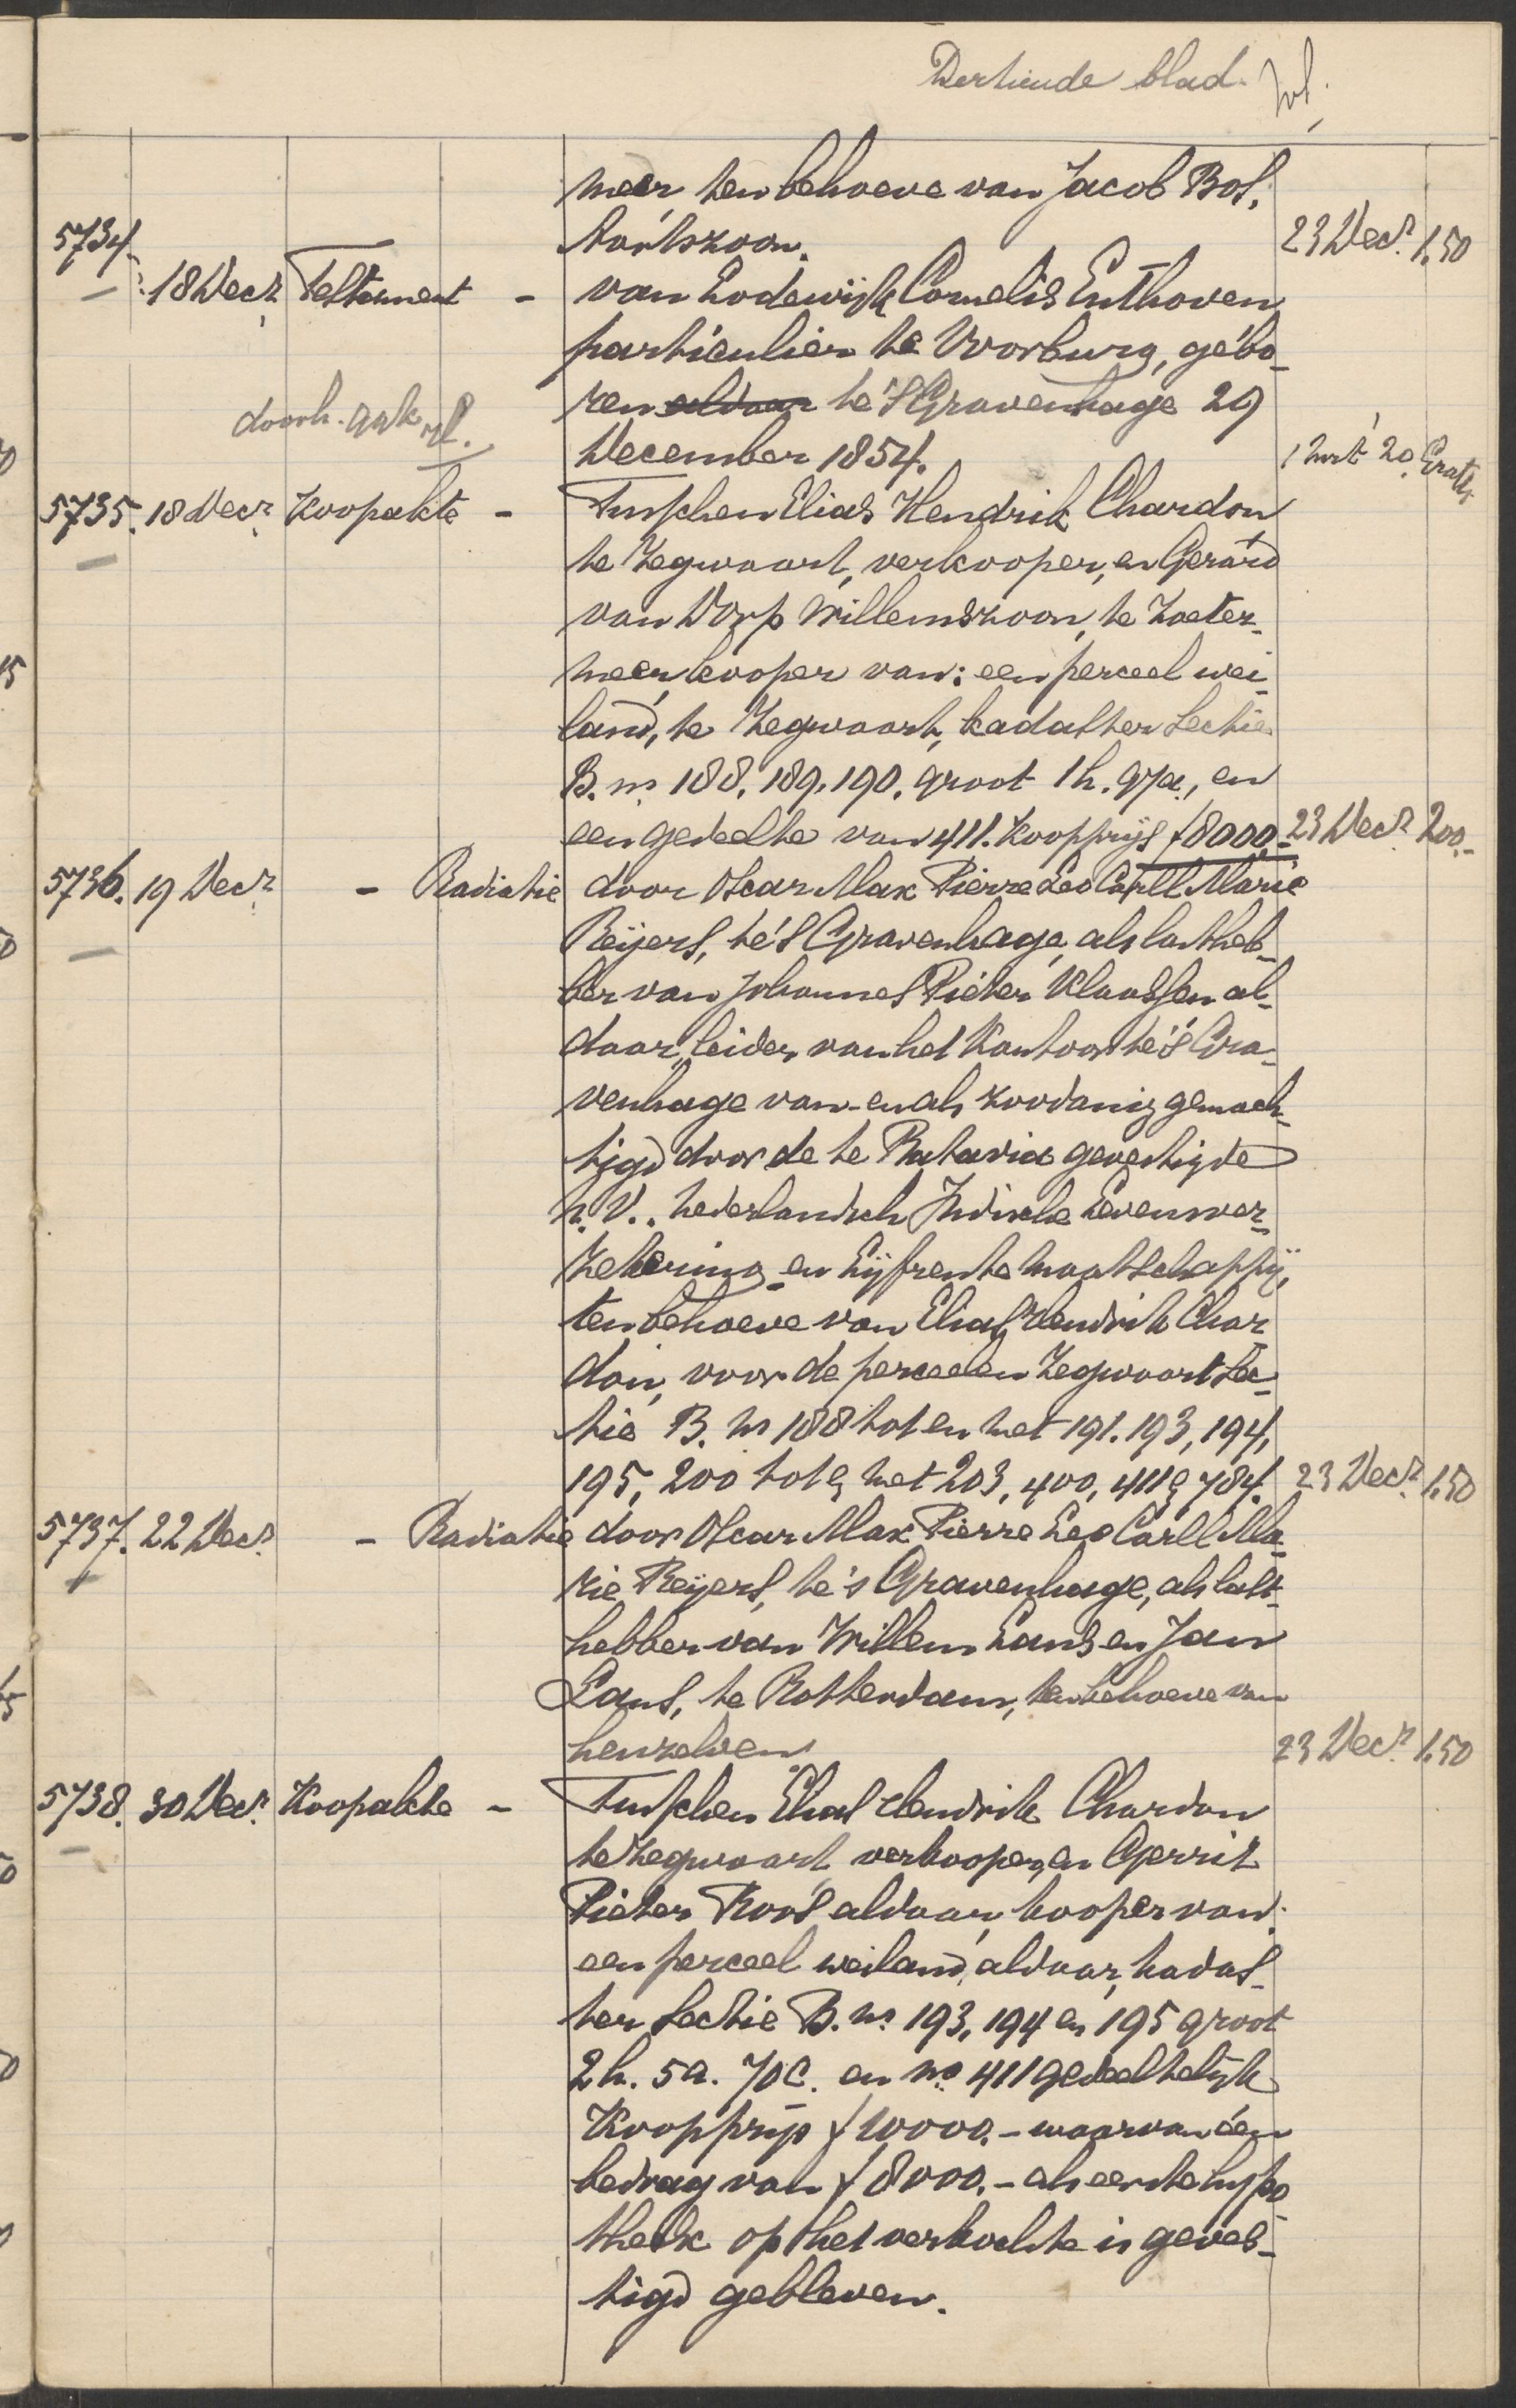 Dertiende blad.
meer ten behoeve van Jacob Bos,
Aartszoon. 23 Decr. 1.50
5734. 18 Decr. Testament - van Lodewijk Cornelis Enthoven
particulier te Voorburg, gebo-
ren aldaar te 's Gravenhage 29
doorh. gok
December 1854. 1 mrt 20 Gratis
5735. 18 Decr. Koopakte - Tusschen Elias Hendrik Chardon
te Zegwaart, verkooper, en Gerard
van Dorp Willemszoon, te Zoeter-
meer, kooper van: een perceel wei-
land, te Zegwaart, kadaster Sectie
B. no. 188, 189, 190, groot 1 h. 97a., en
een gedeelte van 411. Koopprijs f 8000.- 23 Decr. 200.-
5736. 19 Decr. - Radiatie door Oscar Max Pierre Leo Carll Marie
Reijers, te 's Gravenhage, als lastheb-
ber van Johannes Pieter Klaassen, al-
daar, leider van het Kantoor te 's Gra-
venhage van- en als zoodanig gemach-
tigd door de te Batavia gevestigde
N.V. Nederlandsch Indische Levensver-
zekering- en Lijfrente Maatschappij,
ten behoeve van Elias Hendrik Char-
don, voor de perceelen Zegwaart Sec-
tie B. no 188 tot en met 191. 193, 194,
195, 200 tot & met 203, 400, 411 & 784. 23 Decr. 1.50
5737. 22 Decr. - Radiatie door Oscar Max Pierre Leo Carll Ma-
rie Reijers, te 's Gravenhage, als last-
hebber van Willem Lans en Jan
Lans, te Rotterdam, ten behoeve van
henzelven 23 Decr. 1.50
5738. 30 Decr. Koopakte - Tusschen Elias Hendrik Chardon
te Zegwaart, verkooper, en Gerrit
Pieter Roos aldaar, kooper van:
een perceel weiland, aldaar, kadas-
ter Sectie B. no. 193, 194 en 195 groot
2 h. 5 a. 70 c. en no. 411 gedeeltelijk
Koopprijs f 10000.- waarvan een
bedrag van f 8000.- als eerste hypo-
theek op het verkochte is geves-
tigd gebleven.